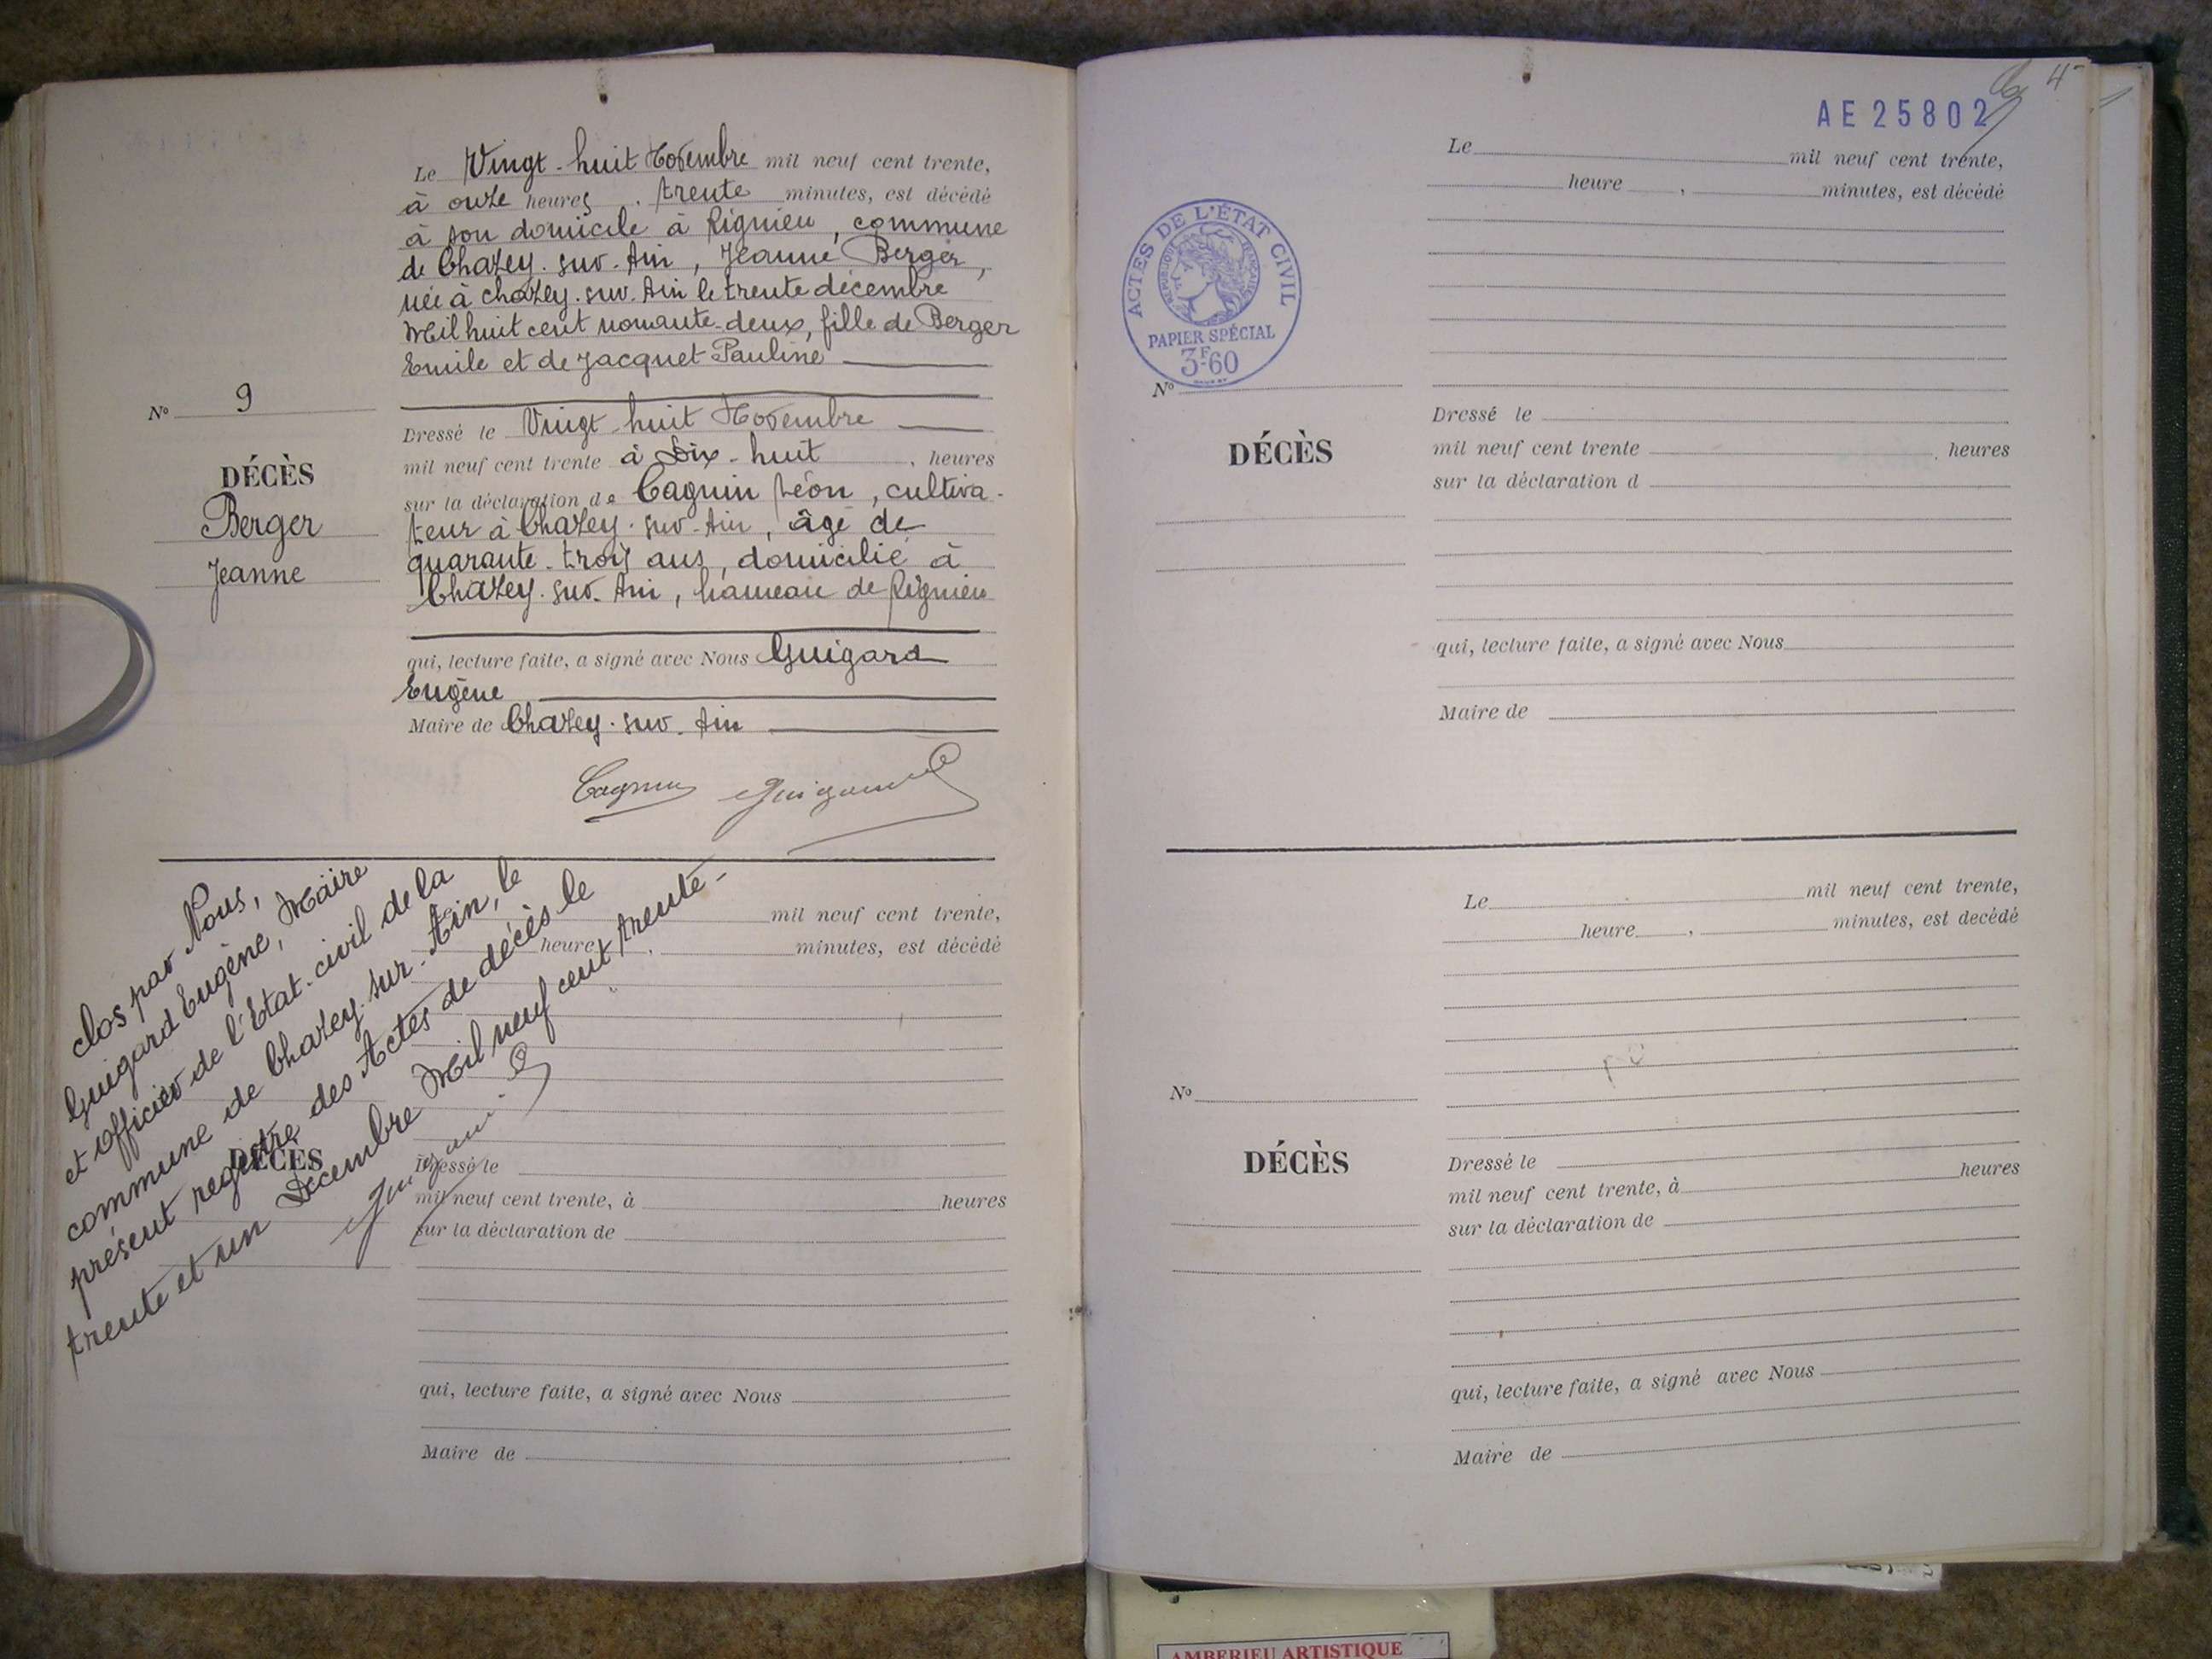 Le Vingt-huit Novembre mil neuf cent trente,
à onze heures . trente minutes, est décédé
à son domicile à Rignieu, commune
de Chazey-sur-Ain, Jeanne Berger,
née à Chazey-sur-Ain le trente décembre
Mil huit cent nonante-deux, fille de Berger
Emile et de Jacquet Pauline
No 9
DÉCÈS
Berger
Jeanne
Dressé le Vingt-huit Novembre
mil neuf cent trente à Dix-huit , heures
sur la déclaration de Cagnin Léon, cultiva-
teur à Chazey-sur-Ain, âgé de
quarante-trois ans, domicilié à
Chazey-sur-Ain, hameau de Rignieu
qui, lecture faite, a signé avec Nous Guigard
Eugène
Maire de Chazey-sur-Ain
Cagnin Guigard
Clos par Nous,
Guigard Eugène, Maire
et Officier de l'Etat-civil de la
commune de Chazey-sur-Ain, le
présent registre des Actes de décès le
trente et un Décembre Mil neuf cent trente-
Guigard
mil neuf cent trente,
heure , minutes, est décédé
DÉCÈS
Dressé le
mil neuf cent trente, à heures
sur la déclaration de
qui, lecture faite, a signé avec Nous
Maire de
4
AE 25802
ACTES DE L'ÉTAT CIVIL
RÉPUBLIQUE FRANÇAISE
PAPIER SPÉCIAL
3F60
Le mil neuf cent trente,
heure , minutes, est décédé
No
DÉCÈS
Dressé le
mil neuf cent trente , heures
sur la déclaration d
qui, lecture faite, a signé avec Nous
Maire de
Le mil neuf cent trente,
heure , minutes, est decédé
No
DÉCÈS
Dressé le
mil neuf cent trente, à heures
sur la déclaration de
qui, lecture faite, a signé avec Nous
Maire de
AMBERIEU ARTISTIQUE